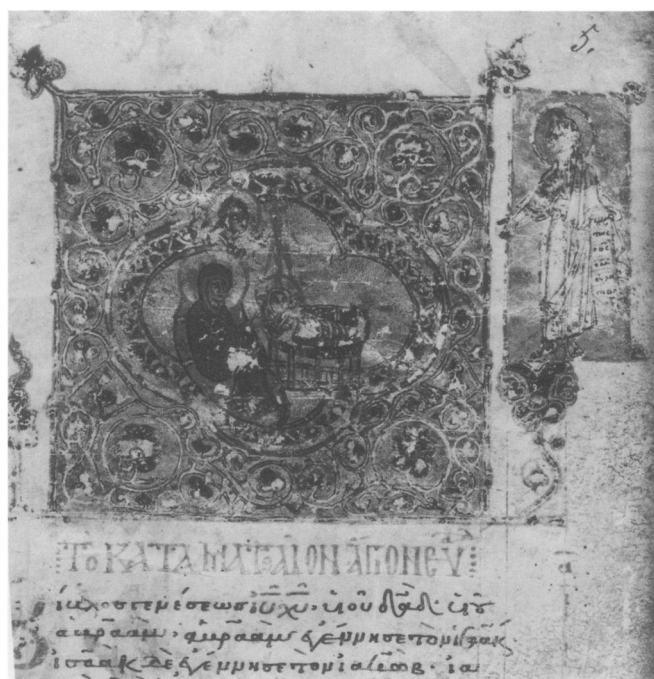 5.
ΤΟ ΚΑΤΑ ΜΑΤΘΑΙΟΝ ΑΓΙΟΝ ΕΥ
ίβλος γενέσεως ἰ̅υ̅ χ̅υ̅· υἱοῦ δ̅α̅δ̅· υἱοῦ
ἀβραάμ· ἀβραὰμ ἐγέννησε τὸν ἰσαάκ·
ἰσαὰκ δὲ ἐγέννησε τὸν ἰακώβ· ἰα